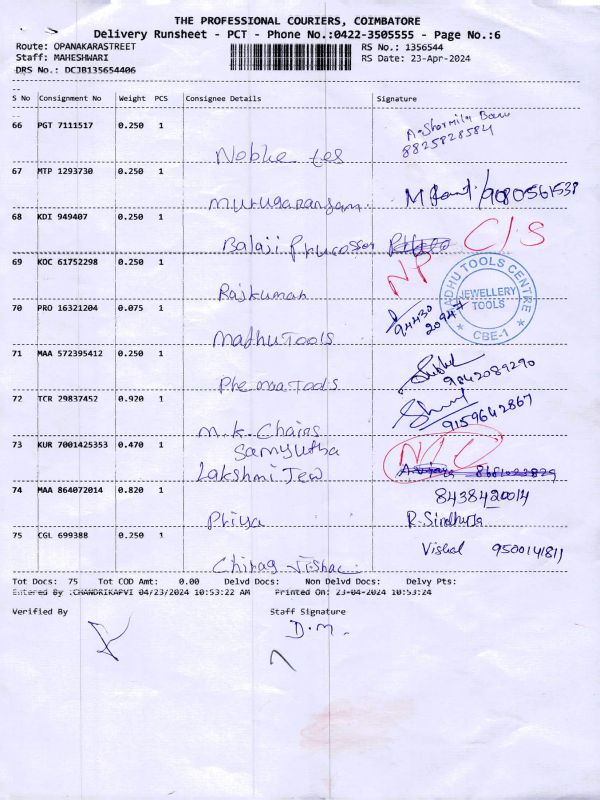 THE PROFESSIONAL COURIERS, COIMBATORE
Delivery Runsheet - PCT - Phone No.:0422-3505555 - Page No.:6
Route: OPANAKARASTREET RS No.: 1356544
Staff: MAHESHWARI RS Date: 23-Apr-2024
DRS No.: DCJB135654406
S No Consignment No Weight PCS Consignee Details Signature
66 PGT 7111517 0.250 1
8825828584
67 MTP 1293730 0.250 1
Murugarangam. 9080561538
68 KDI 949407 0.250 1
Balaji C/S
69 KOC 61752298 0.250 1 NP
Rajkumar
70 PRO 16321204 0.075 1 94430
20947
Madhu Tools
MADHU TOOLS CENTRE
JEWELLERY
TOOLS
CBE-1
71 MAA 572395412 0.250 1
9842089290
Tools
72 TCR 29837452 0.920 1
9159642867
M.K. Chains
73 KUR 7001425353 0.470 1 Samyutha
Lakshmi Jew
74 MAA 864072014 0.820 1 8438420014
Priya R. Sindhuja
75 CGL 699388 0.250 1 Vishal 9500141811
Chirag
Tot Docs: 75 Tot COD Amt: 0.00 Delvd Docs: Non Delvd Docs: Delvy Pts:
Entered By :CHANDRIKAPVI 04/23/2024 10:53:22 AM Printed On: 23-04-2024 10:53:24
Verified By Staff Signature
D.M.